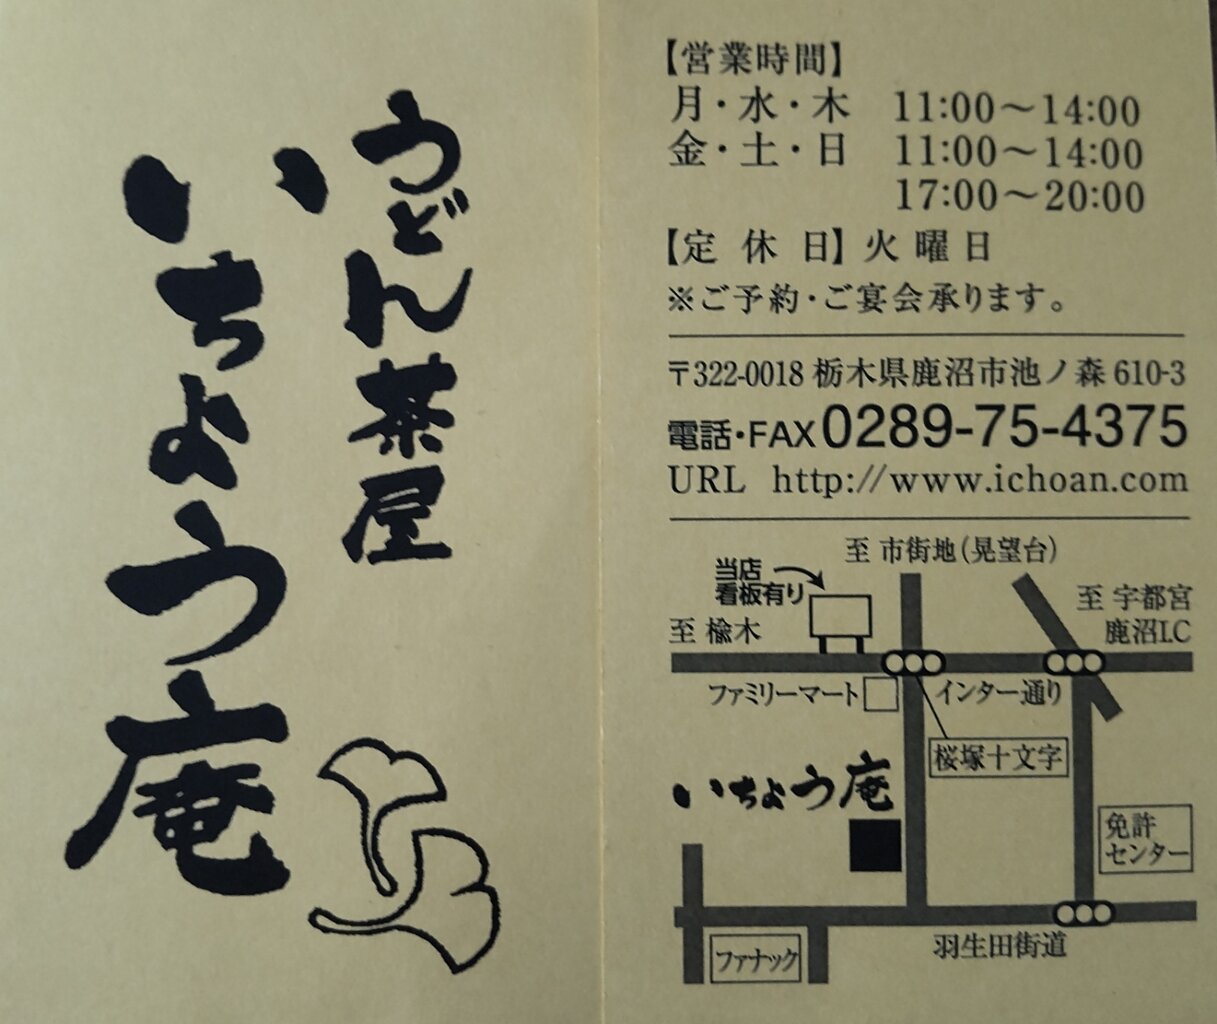 うどん茶屋
いちょう庵
【営業時間】
月・水・木 11:00〜14:00
金・土・日 11:00〜14:00
17:00〜20:00
【定休日】火曜日
※ご予約・ご宴会承ります。
〒322-0018 栃木県鹿沼市池ノ森 610-3
電話・FAX 0289-75-4375
URL http://www.ichoan.com
至 市街地(晃望台)
当店
看板有り
至 宇都宮
鹿沼I.C
至 楡木
ファミリーマート
インター通り
桜塚十文字
いちょう庵
免許
センター
羽生田街道
ファナック